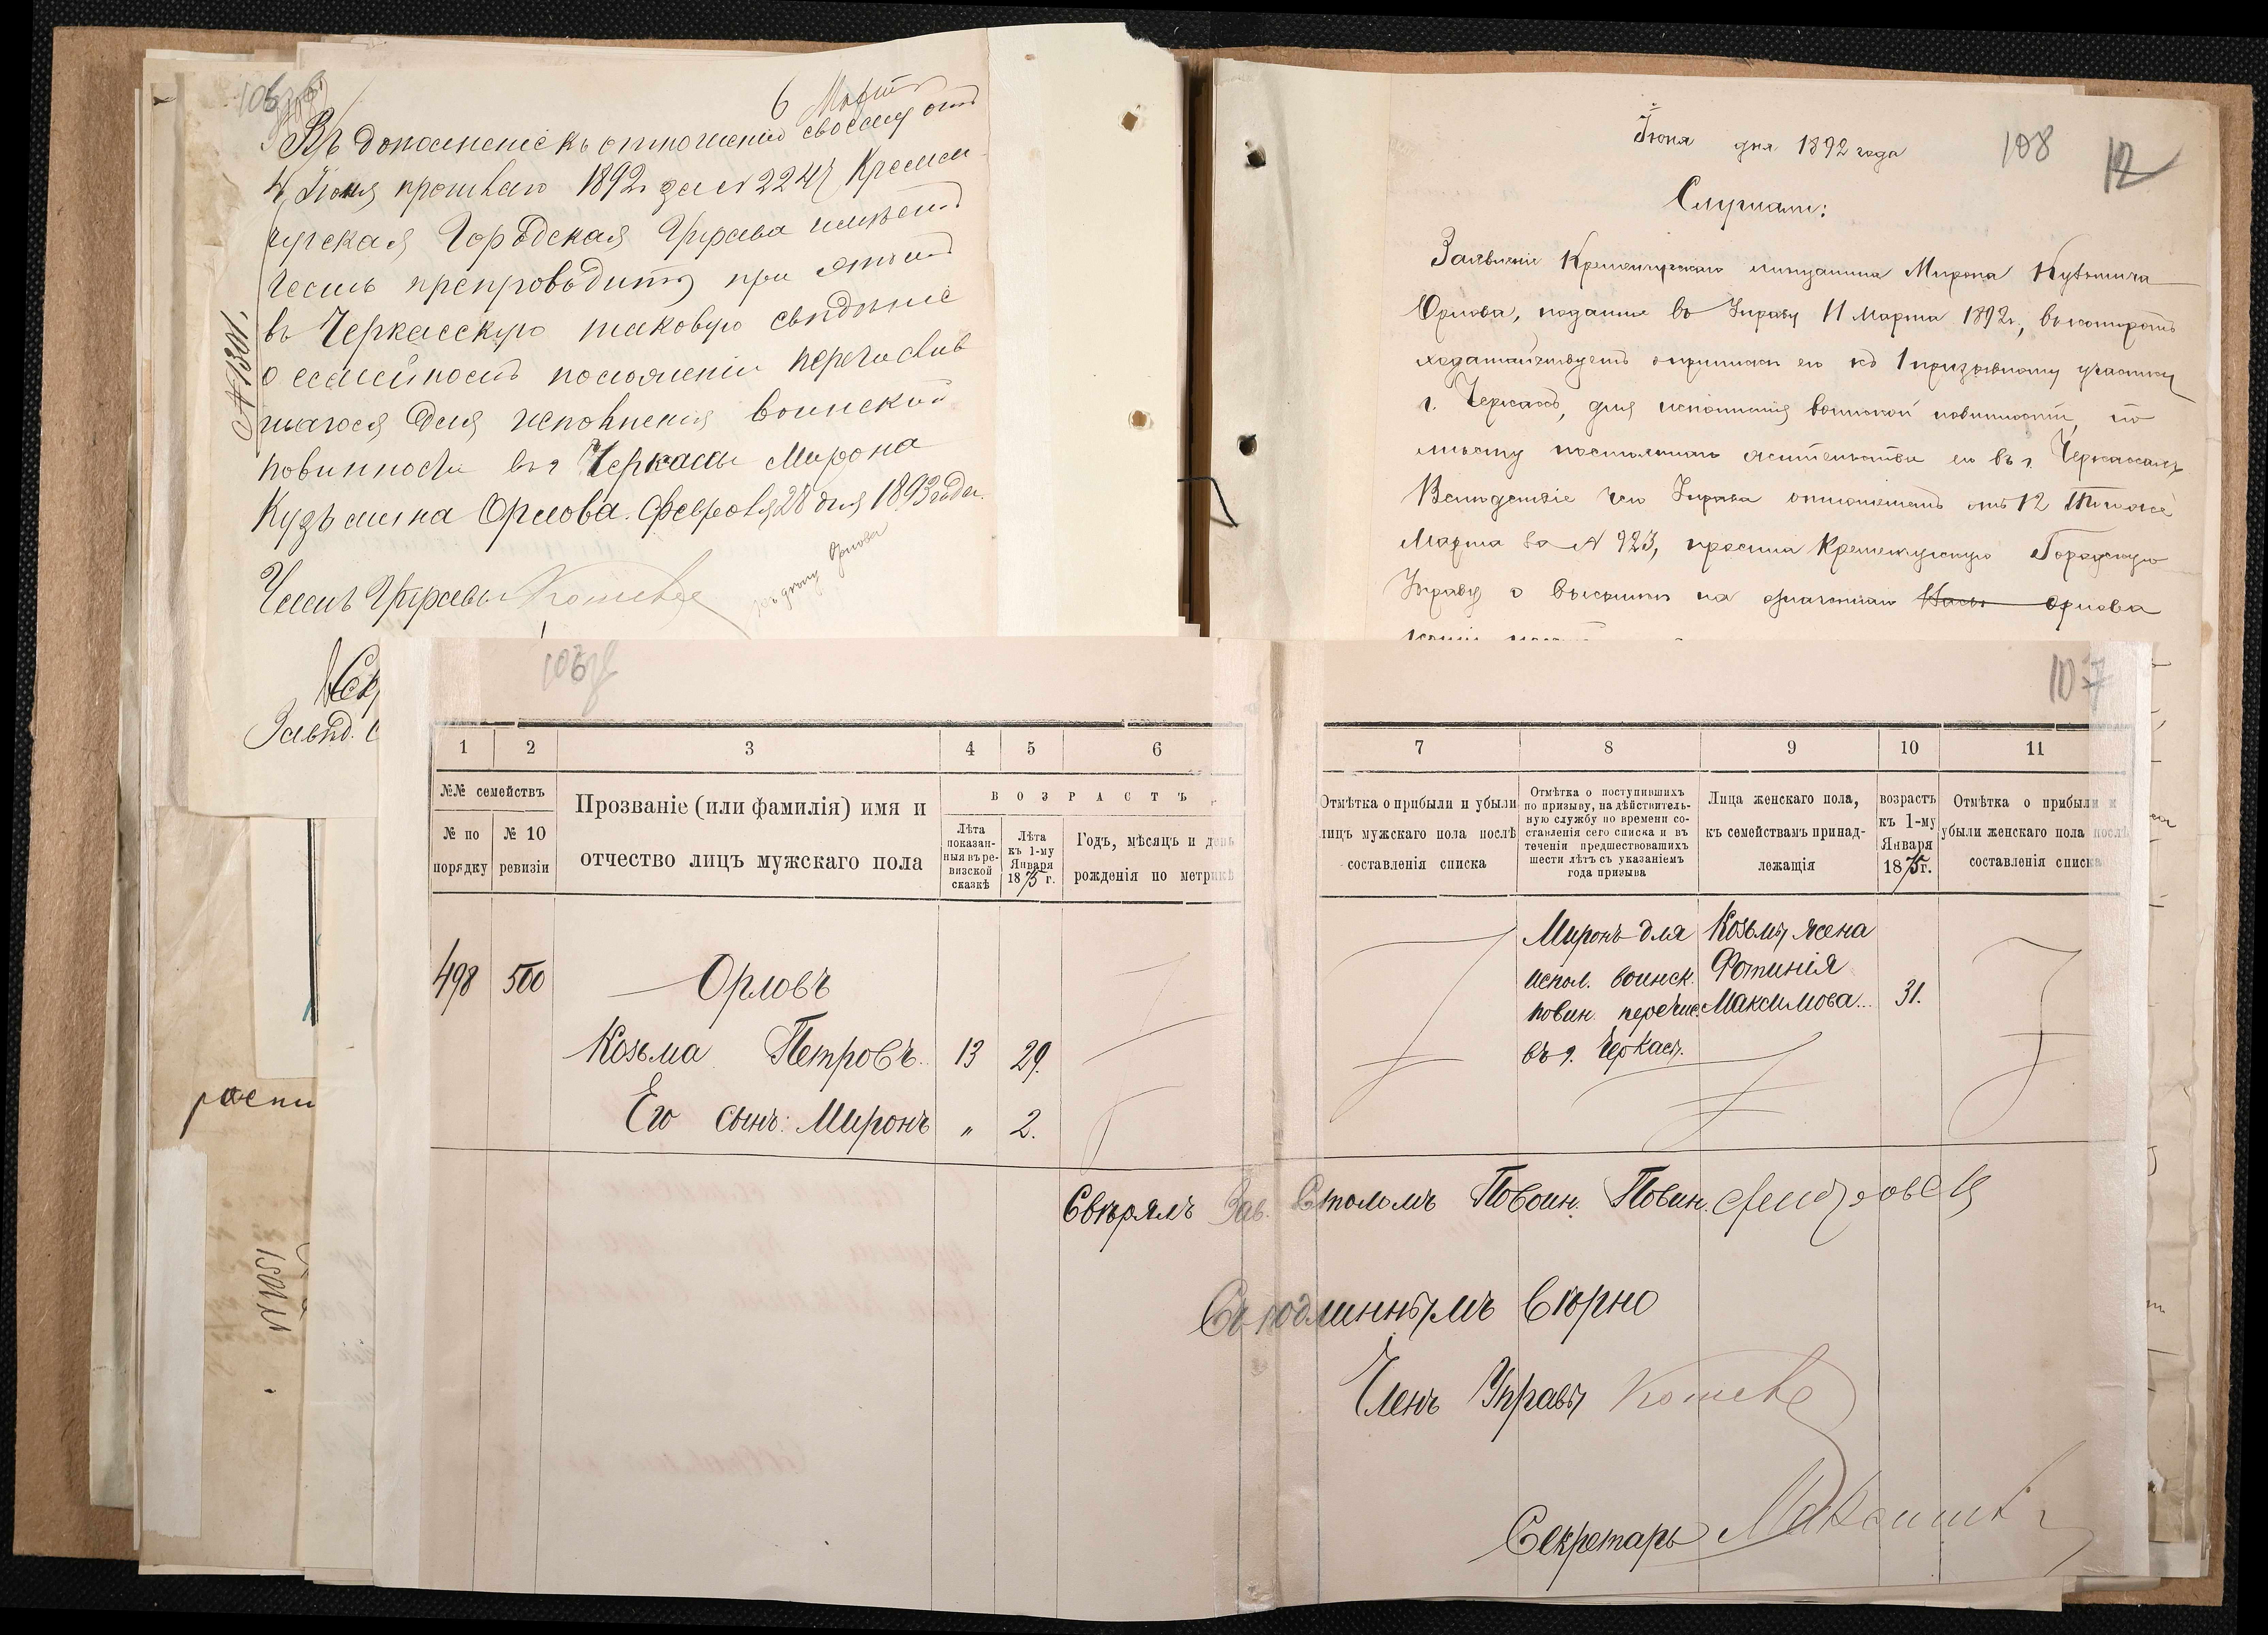 6 Марта
Въ дополненіе къ отношенію своему отъ
4 Іюня прошлаго 1892 г. за № 2247 Кременчугская
Городская Управа имѣетъ
честь препроводить при этомъ
въ Черкасскую таковую свѣдѣніе
о семейномъ положеніи перечислив
шагося для исполненія воинской
повинности въ г. Черкассы Мирона
Кузьмина Орлова. Февраля 28 дня 1893 года.
№ 1301.
Членъ Управы
Завѣд. С
Іюня дня 1892 года
108 12
Слушали:
Заявленіе Кременчугскаго мѣщанина Мирона Кузьмича
Орлова, поданное въ Управу 11 Марта 1892 г., въ которомъ
ходатайствуетъ о припискѣ его къ 1 призывному участку
г. Черкассъ, для исполненія воинской повинности, по
мѣсту постояннаго жительства его въ г. Черкассахъ
Вслѣдствіе чего Управа отношеніемъ отъ 12 того же
Марта за № 923, просила Кременчугскую Городскую
Управу о высылкѣ на означеннаго Орлова
107
1 2 3 4 5 6 7 8 9 10 11
№№ семействъ
№ по порядку
№ 10 ревизіи
Прозваніе (или фамилія) имя и
отчество лицъ мужскаго пола
ВОЗРАСТЪ
Лѣта показан-
ныя въ ре-
визской
сказкѣ
Лѣта
къ 1-му
Января
1875 г.
Годъ, мѣсяцъ и день
рожденія по метрикѣ
Отмѣтка о прибыли и убыли
лицъ мужскаго пола послѣ
составленія списка
Отмѣтка о поступившихъ
по призыву, на дѣйствитель-
ную службу по времени со-
ставленія сего списка и въ
теченіи предшествовавшихъ
шести лѣтъ съ указаніемъ
года призыва
Лица женскаго пола,
къ семействамъ принад-
лежащія
возрастъ
къ 1-му
Января
1875 г.
Отмѣтка о прибыли и
убыли женскаго пола послѣ
составленія списка
498 500 Орловъ
Козьма Петровъ 13 29.
Его сынъ: Миронъ „ 2.
Миронъ для
испол. воинск.
повин. перечис.
въ г. Черкасы.
Козьмы жена
Фотинія
Максимова... 31.
Свѣрялъ Зав. Столомъ По Воин. Повин.
Съ подлиннымъ вѣрно
Членъ Управы
Секретарь